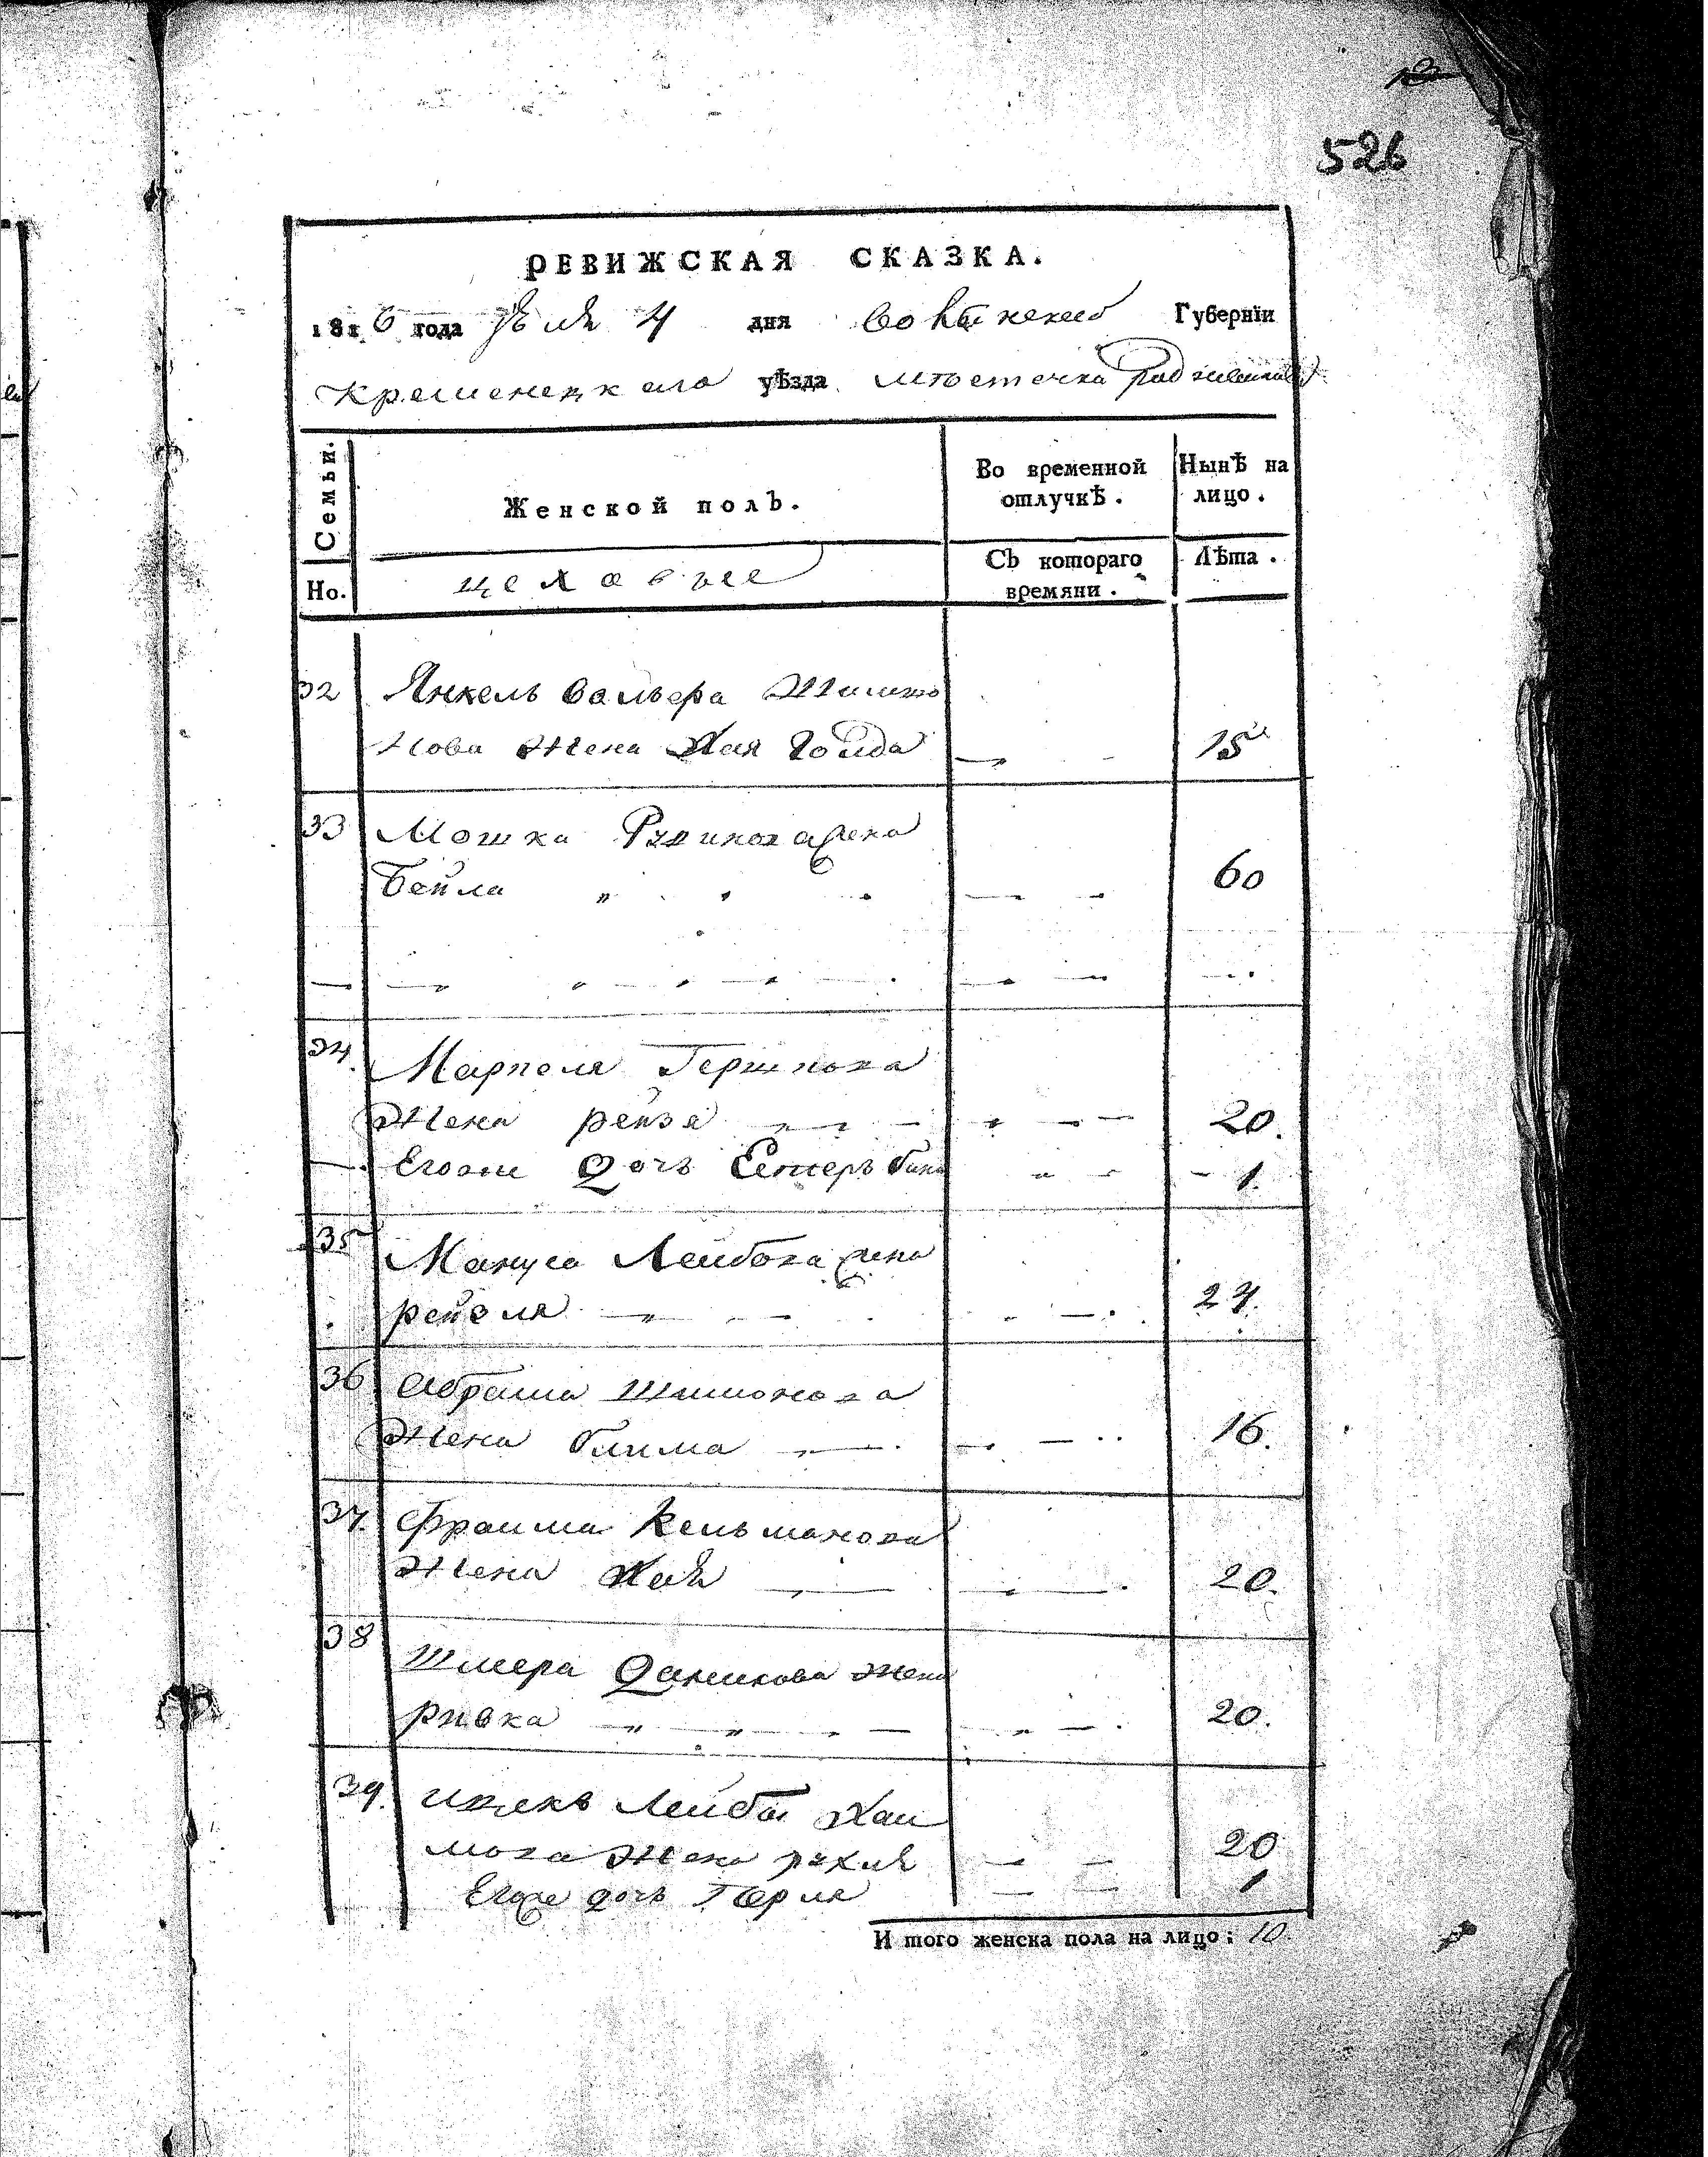 526
РЕВИЖСКАЯ СКАЗКА.
1816 года Іюля 4 дня Волынской Губерніи
Кременецкаго уѣзда мѣстечка Радзивилова
Семьи.
Женской полъ.
Во временной отлучкѣ.
Нынѣ на лицо.
Но.
цеховые
Съ котораго времяни.
Лѣта.
32 Янкель Вольфа Шимо
нова жена Хая Голда 15
33 Мошка жена
Бейла 60
34. Гершкова
Жена рейзя 20.
Егоже дочь Естеръ 1.
35 Мануса Лейбова жена
рейзля 24.
36 Абрама Шимонова
Жена блима 16.
37. Фроима Кельманова
Жена Хая 20.
38 Шмера Данилова жена
ривка 20.
39. ицекъ Лейбы Хаи
мова жена рухля 20
Егоже дочь Перля 1
И того женска пола на лицо: 10.